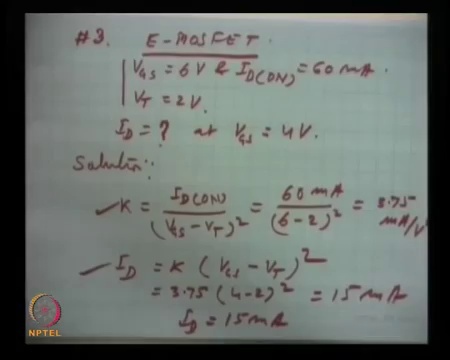 #3. E-MOSFET.
V_GS = 6V & I_D(ON) = 60 mA.
V_T = 2V.
I_D = ? at V_GS = 4V.
Solution:
✓ K = I_D(ON) / (V_GS - V_T)^2 = 60 mA / (6-2)^2 = 3.75 mA/V
✓ I_D = K (V_GS - V_T)^2
= 3.75 (4-2)^2 = 15 mA
I_D = 15 mA
NPTEL